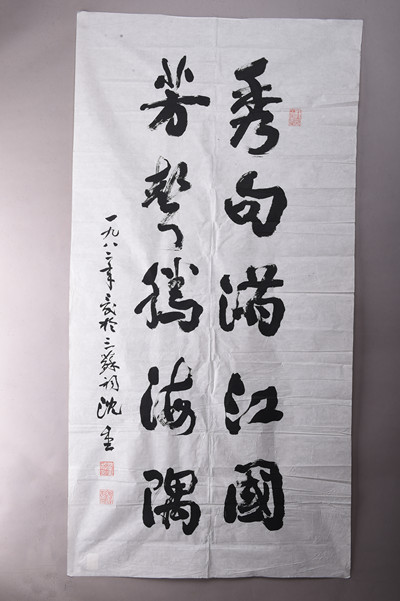 秀句满江國
芳聲腾海隅
一九八二年 於三蘇祠 沈